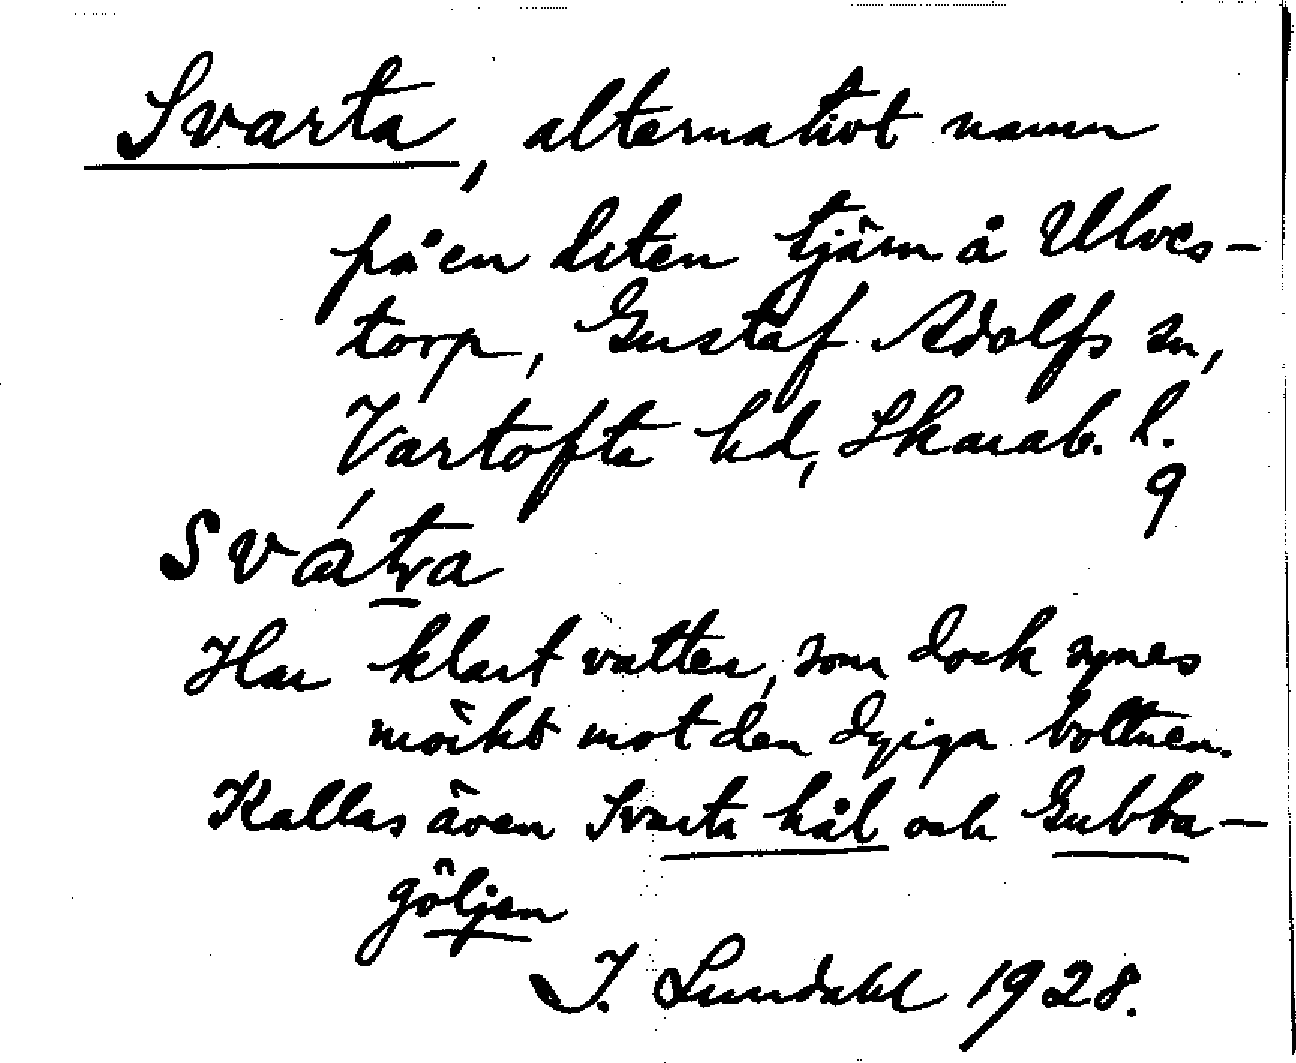 Svarta, alternativt namn
på en liten tjärn å Ulves-
torp, Gustaf Adolfs sn,
Vartofta hd, Skarab. l.
9
Svátra
Har klart vatten, som dock synes
mörkt mot den dyiga bottnen.
Kallas även Svarta hål och Gubba-
göljen
I. Lundahl 1928.